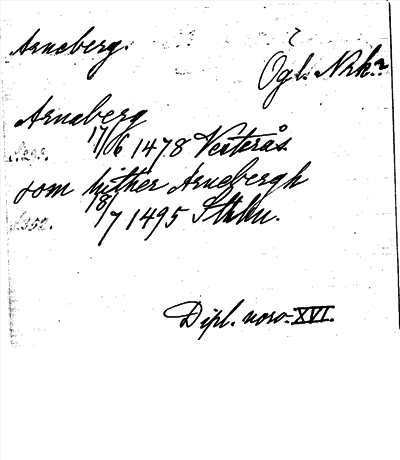 Arneberg.
?
Ögl. Nrk?
Arnaberg
17/06 1478 Vesterås
S. 298.
som hither Arnebergh
18/7 1495 Sthlm.
S. 352.
Dipl. norv. XVI.